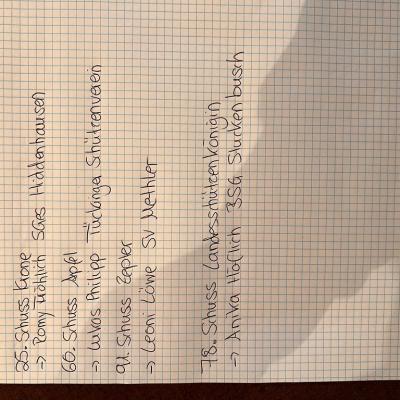 25. Schuss Krone
→ Romy Fröhlich SGes Hiddenhausen
60. Schuss Apfel
→ Lukas Philipp Tückinger Schützenverein
91. Schuss Zepter
→ Leoni Löwe SV Methler
78. Schuss Landesschützenkönigin
→ Anika Höflich BSG Stuckenbusch